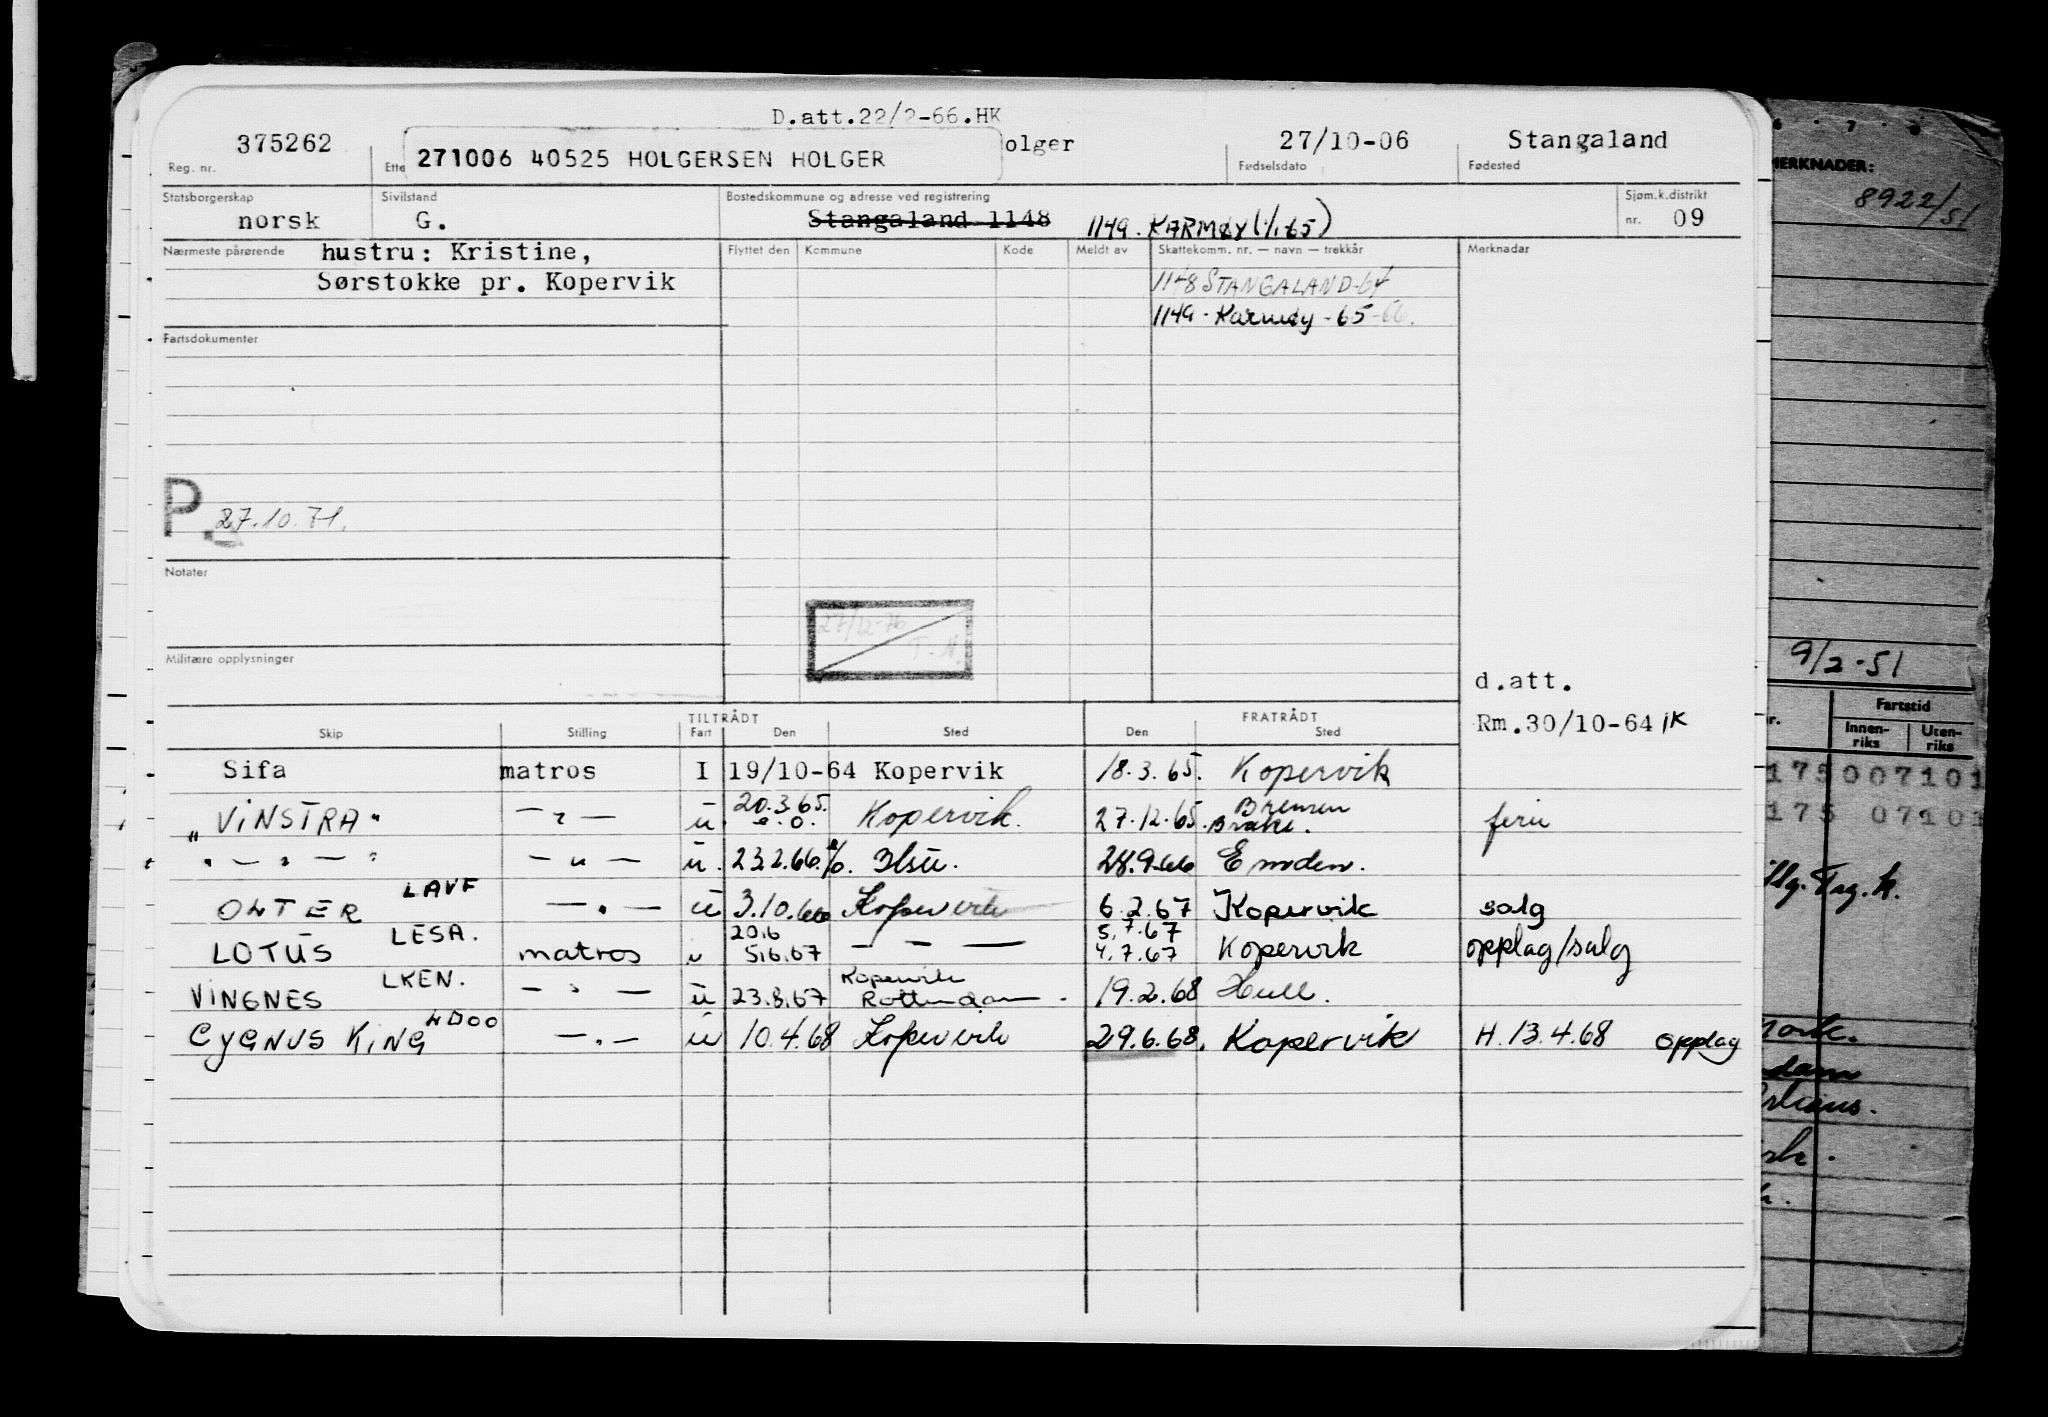 D.att.22/2-66.HK
375262 271006 40525 HOLGERSEN HOLGER olger 27/10-06 Stangaland
Reg. nr. Ette Fødselsdato Fødested
Statsborgerskap Sivilstand Bostedskommune og adresse ved registrering Sjøm.k.distrikt
norsk G. Stangaland 1148 1149. KARMØY (1/1.65) nr. 09
Nærmeste pårørende hustru: Kristine, Flyttet den Kommune Kode Meldt av Skattekomm. nr. — navn — trekkår Merknader
Sørstokke pr. Kopervik 1148 STANGALAND-64
1149 - Karmøy - 65-66.
Fartsdokumenter
P. 27.10.71.
Notater
27/12-76
T.H.
Militære opplysninger
d.att.
TILTRÅDT FRATRÅDT Rm.30/10-64 IK
Skip Stilling Fart Den Sted Den Sted
Sifa matros I 19/10-64 Kopervik 18.3.65. Kopervik
"VINSTRA" — " — u 20.3.65. e.o. Kopervik. 27.12.65. Bremen Brake. ferie
" — " — " — " — u. 23.2.66. 28.9.66 Emden.
LAVF
OLTER — " — u 3.10.66 Kopervik 6.2.67 Kopervik salg
LESA. 20.6 5.7.67
LOTUS matros u 5.6.67 — — — 4.7.67 Kopervik opplag/salg
LKEN. Kopervik
VINGNES — " — u 23.8.67 Rotterdam 19.2.68 Hull.
LDOO
CYGNUS KING — " — u 10.4.68 Kopervik 29.6.68. Kopervik H. 13.4.68 opplag
6 7 8
MERKNADER:
8922/51
9/2-51
r. Fartstid
Innen-riks Uten-riks
175007101
175 07101